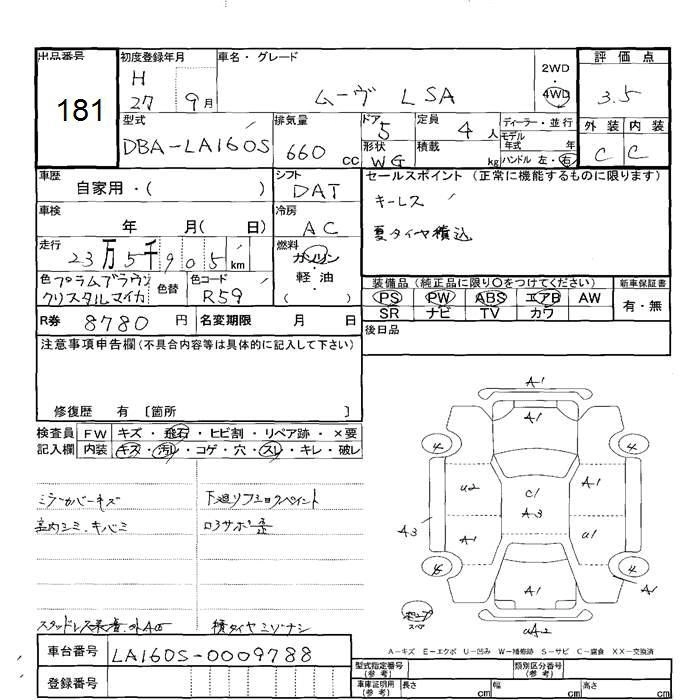 出品番号 181
初度登録年月 H 27 9月
車名・グレード ムーヴ L SA
2WD・4WD
評価点 3.5
外装 C 内装 C
型式 DBA-LA160S
排気量 660 cc
ドア 5 形状 WG
定員 4人 積載 kg
ディーラー・並行
モデル年式 年
ハンドル 左・右
車歴 自家用・( )
シフト DAT
セールスポイント (正常に機能するものに限ります)
キーレス
夏タイヤ積込
車検 年 月( 日)
冷房 AC
走行 23万5千905km
燃料 ガソリン・軽油・( )
色 プラムブラウンクリスタルマイカ 色替
色コード R59
装備品 (純正品に限り○をつけてください) 新車保証書
PS PW ABS エアB AW 有・無
SR ナビ TV カワ
R券 8780円 名変期限 月 日
後日品
注意事項申告欄(不具合内容等は具体的に記入して下さい)
修復歴 有 [箇所 ]
検査員記入欄 FW キズ・飛石・ヒビ割・リペア跡・×要
内装 キズ・汚レ・コゲ・穴・スレ・キレ・破レ
ミラーカバーキズ
室内シミ・キバミ
下廻リ
積タイヤミゾナシ
A1
A1
4 4
U2 C1 A1
A3
A3 A1 U1
4 4
A1 A1
スペア
UA2
A-キズ E-エクボ U-凹み W-補修跡 S-サビ C-腐食 XX-交換済
車台番号 LA160S-0009788
登録番号
型式指定番号(参考) 類別区分番号(参考)
車庫証明用(参考) 長さ cm 幅 cm 高さ cm